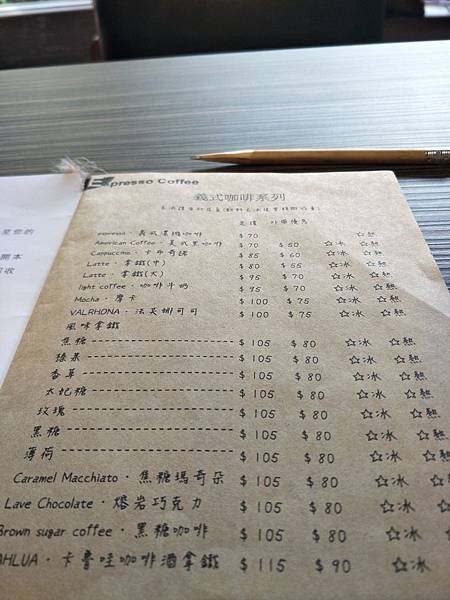 Espresso Coffee
義式咖啡系列
定價 外帶優惠
espresso · 義式濃縮咖啡 $ 70 ☆熱
American Coffee · 美式黑咖啡 $ 70 $ 50 ☆冰 ☆熱
Cappuccino · 卡布奇諾 $ 85 $ 60 ☆冰 ☆熱
Latte · 拿鐵(中) $ 80 $ 55 ☆冰 ☆熱
Latte · 拿鐵(大) $ 95 $ 70 ☆冰 ☆熱
light coffee · 咖啡牛奶 $ 95 $ 70 ☆冰 ☆熱
Mocha · 摩卡 $ 100 $ 75 ☆冰 ☆熱
VALRHONA · 法芙娜可可 $ 100 $ 75 ☆冰 ☆熱
風味拿鐵
焦糖 $ 105 $ 80 ☆冰 ☆熱
榛果 $ 105 $ 80 ☆冰 ☆熱
香草 $ 105 $ 80 ☆冰 ☆熱
太妃糖 $ 105 $ 80 ☆冰 ☆熱
玫瑰 $ 105 $ 80 ☆冰 ☆熱
黑糖 $ 105 $ 80 ☆冰 ☆熱
薄荷 $ 105 $ 80 ☆冰 ☆熱
Caramel Macchiato · 焦糖瑪奇朵 $ 105 $ 80 ☆冰 ☆熱
Lave Chocolate · 熔岩巧克力 $ 105 $ 80 ☆冰 ☆熱
Brown sugar coffee · 黑糖咖啡 $ 105 $ 80 ☆冰 ☆熱
AHLUA · 卡魯哇咖啡酒拿鐵 $ 115 $ 90 ☆冰